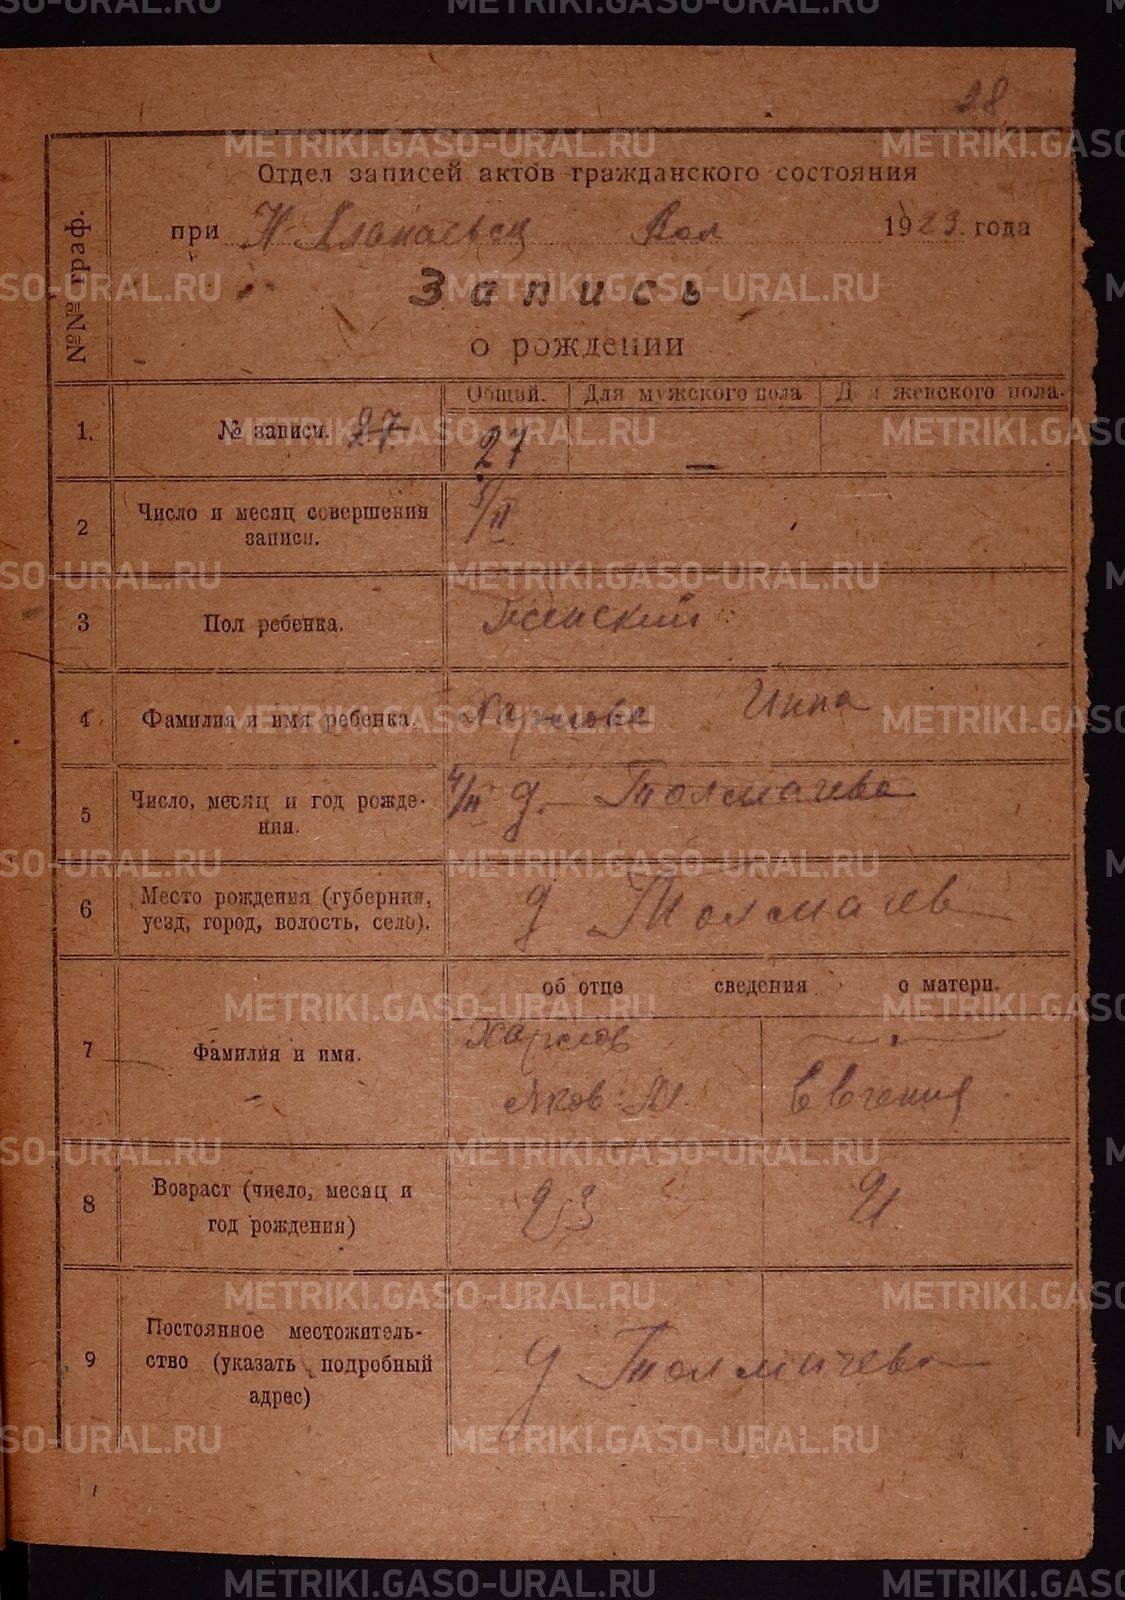 28
Отдел записей актов гражданского состояния
при Н Алапаевск Вол 1923 года
Запись
о рождении
№№ граф.
Общий. Для мужского пола Для женского пола.
1. № записи. 27 27 —
2 Число и месяц совершения
записи. 5/II
3 Пол ребенка. Женский
4 Фамилия и имя ребенка. Харлова Инна
5 Число, месяц и год рожде-
ния. 4/II д. Толмачева
6 Место рождения (губерния,
уезд, город, волость, село). д Толмачев
об отце сведения о матери.
7 Фамилия и имя. Харлов
Яков Евгения
8 Возраст (число, месяц и
год рождения) 23 21
9 Постоянное местожитель-
ство (указать подробный
адрес) д Толмачева
METRIKI.GASO-URAL.RU